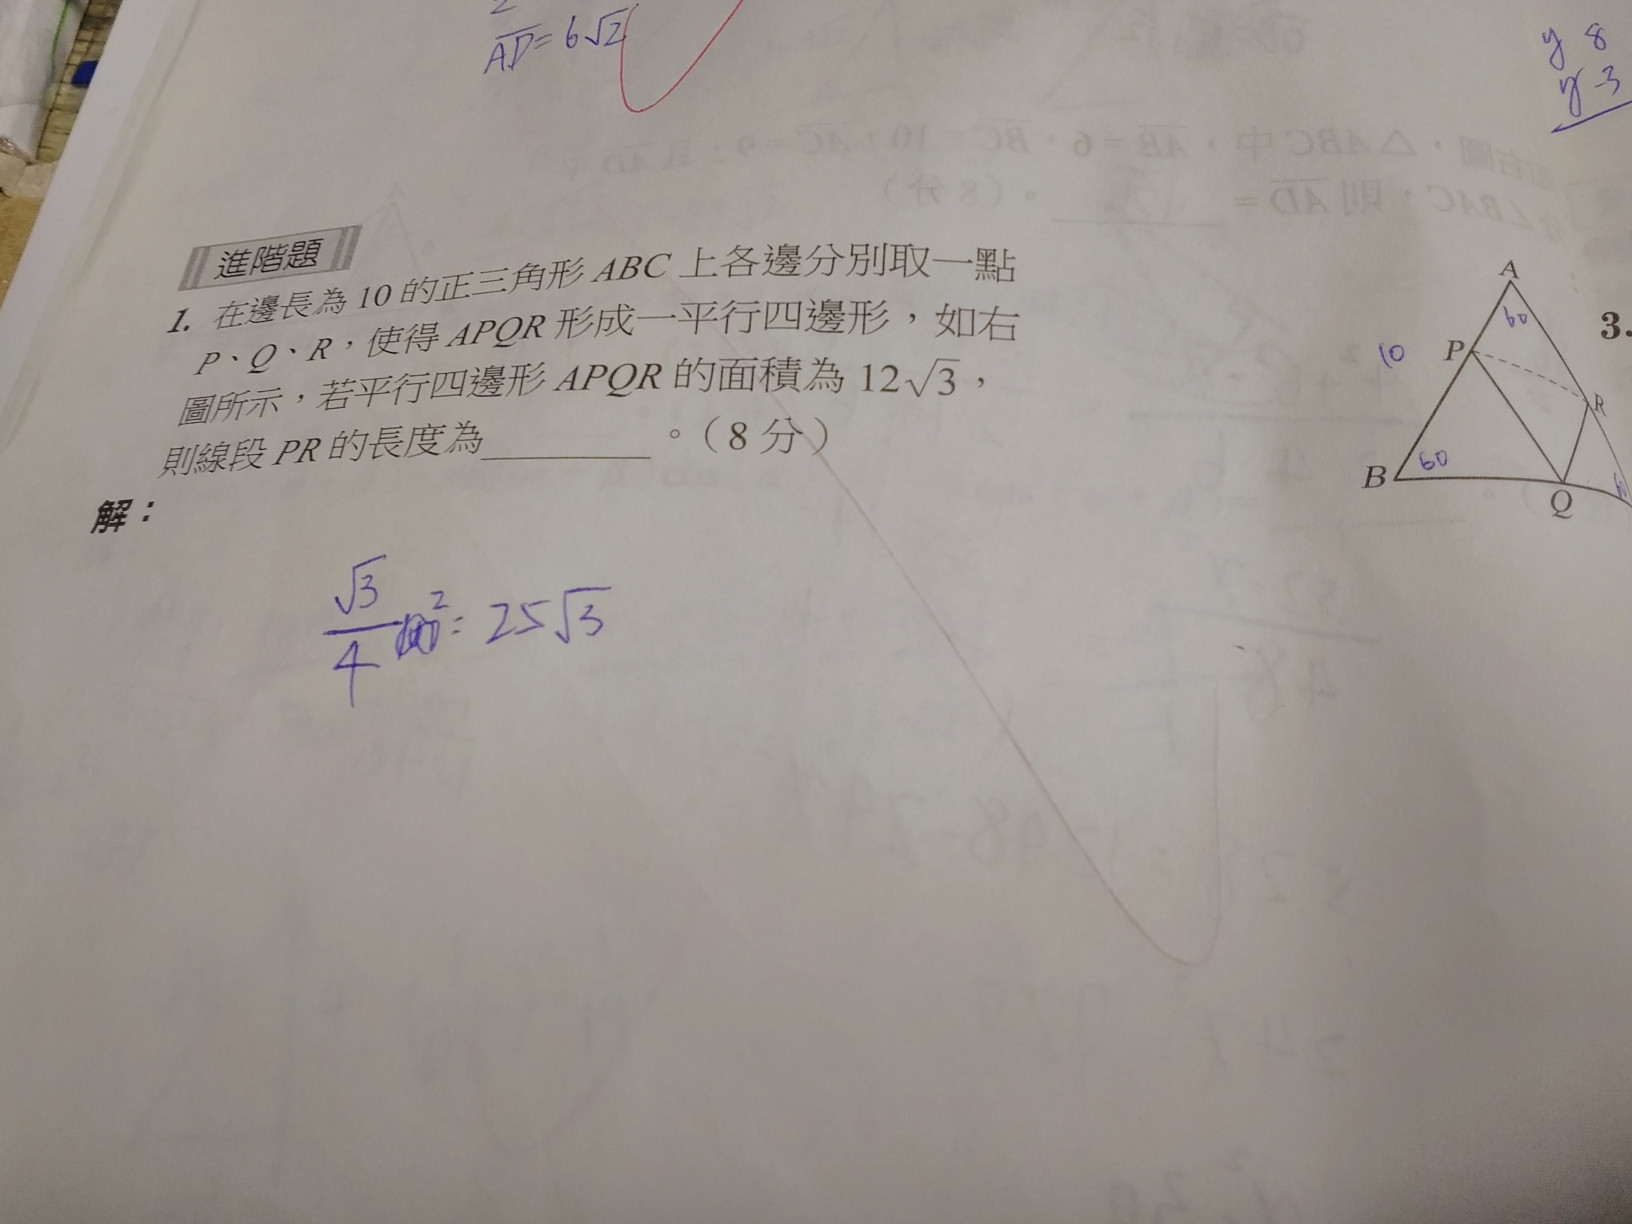 AD = 6√2
y 8
y -3
進階題
1. 在邊長為 10 的正三角形 ABC 上各邊分別取一點
P、Q、R，使得 APQR 形成一平行四邊形，如右
圖所示，若平行四邊形 APQR 的面積為 12√3，
則線段 PR 的長度為________。（8 分）
A
60
10
P
R
B
60
Q
3.
解：
√3/4 10² = 25√3